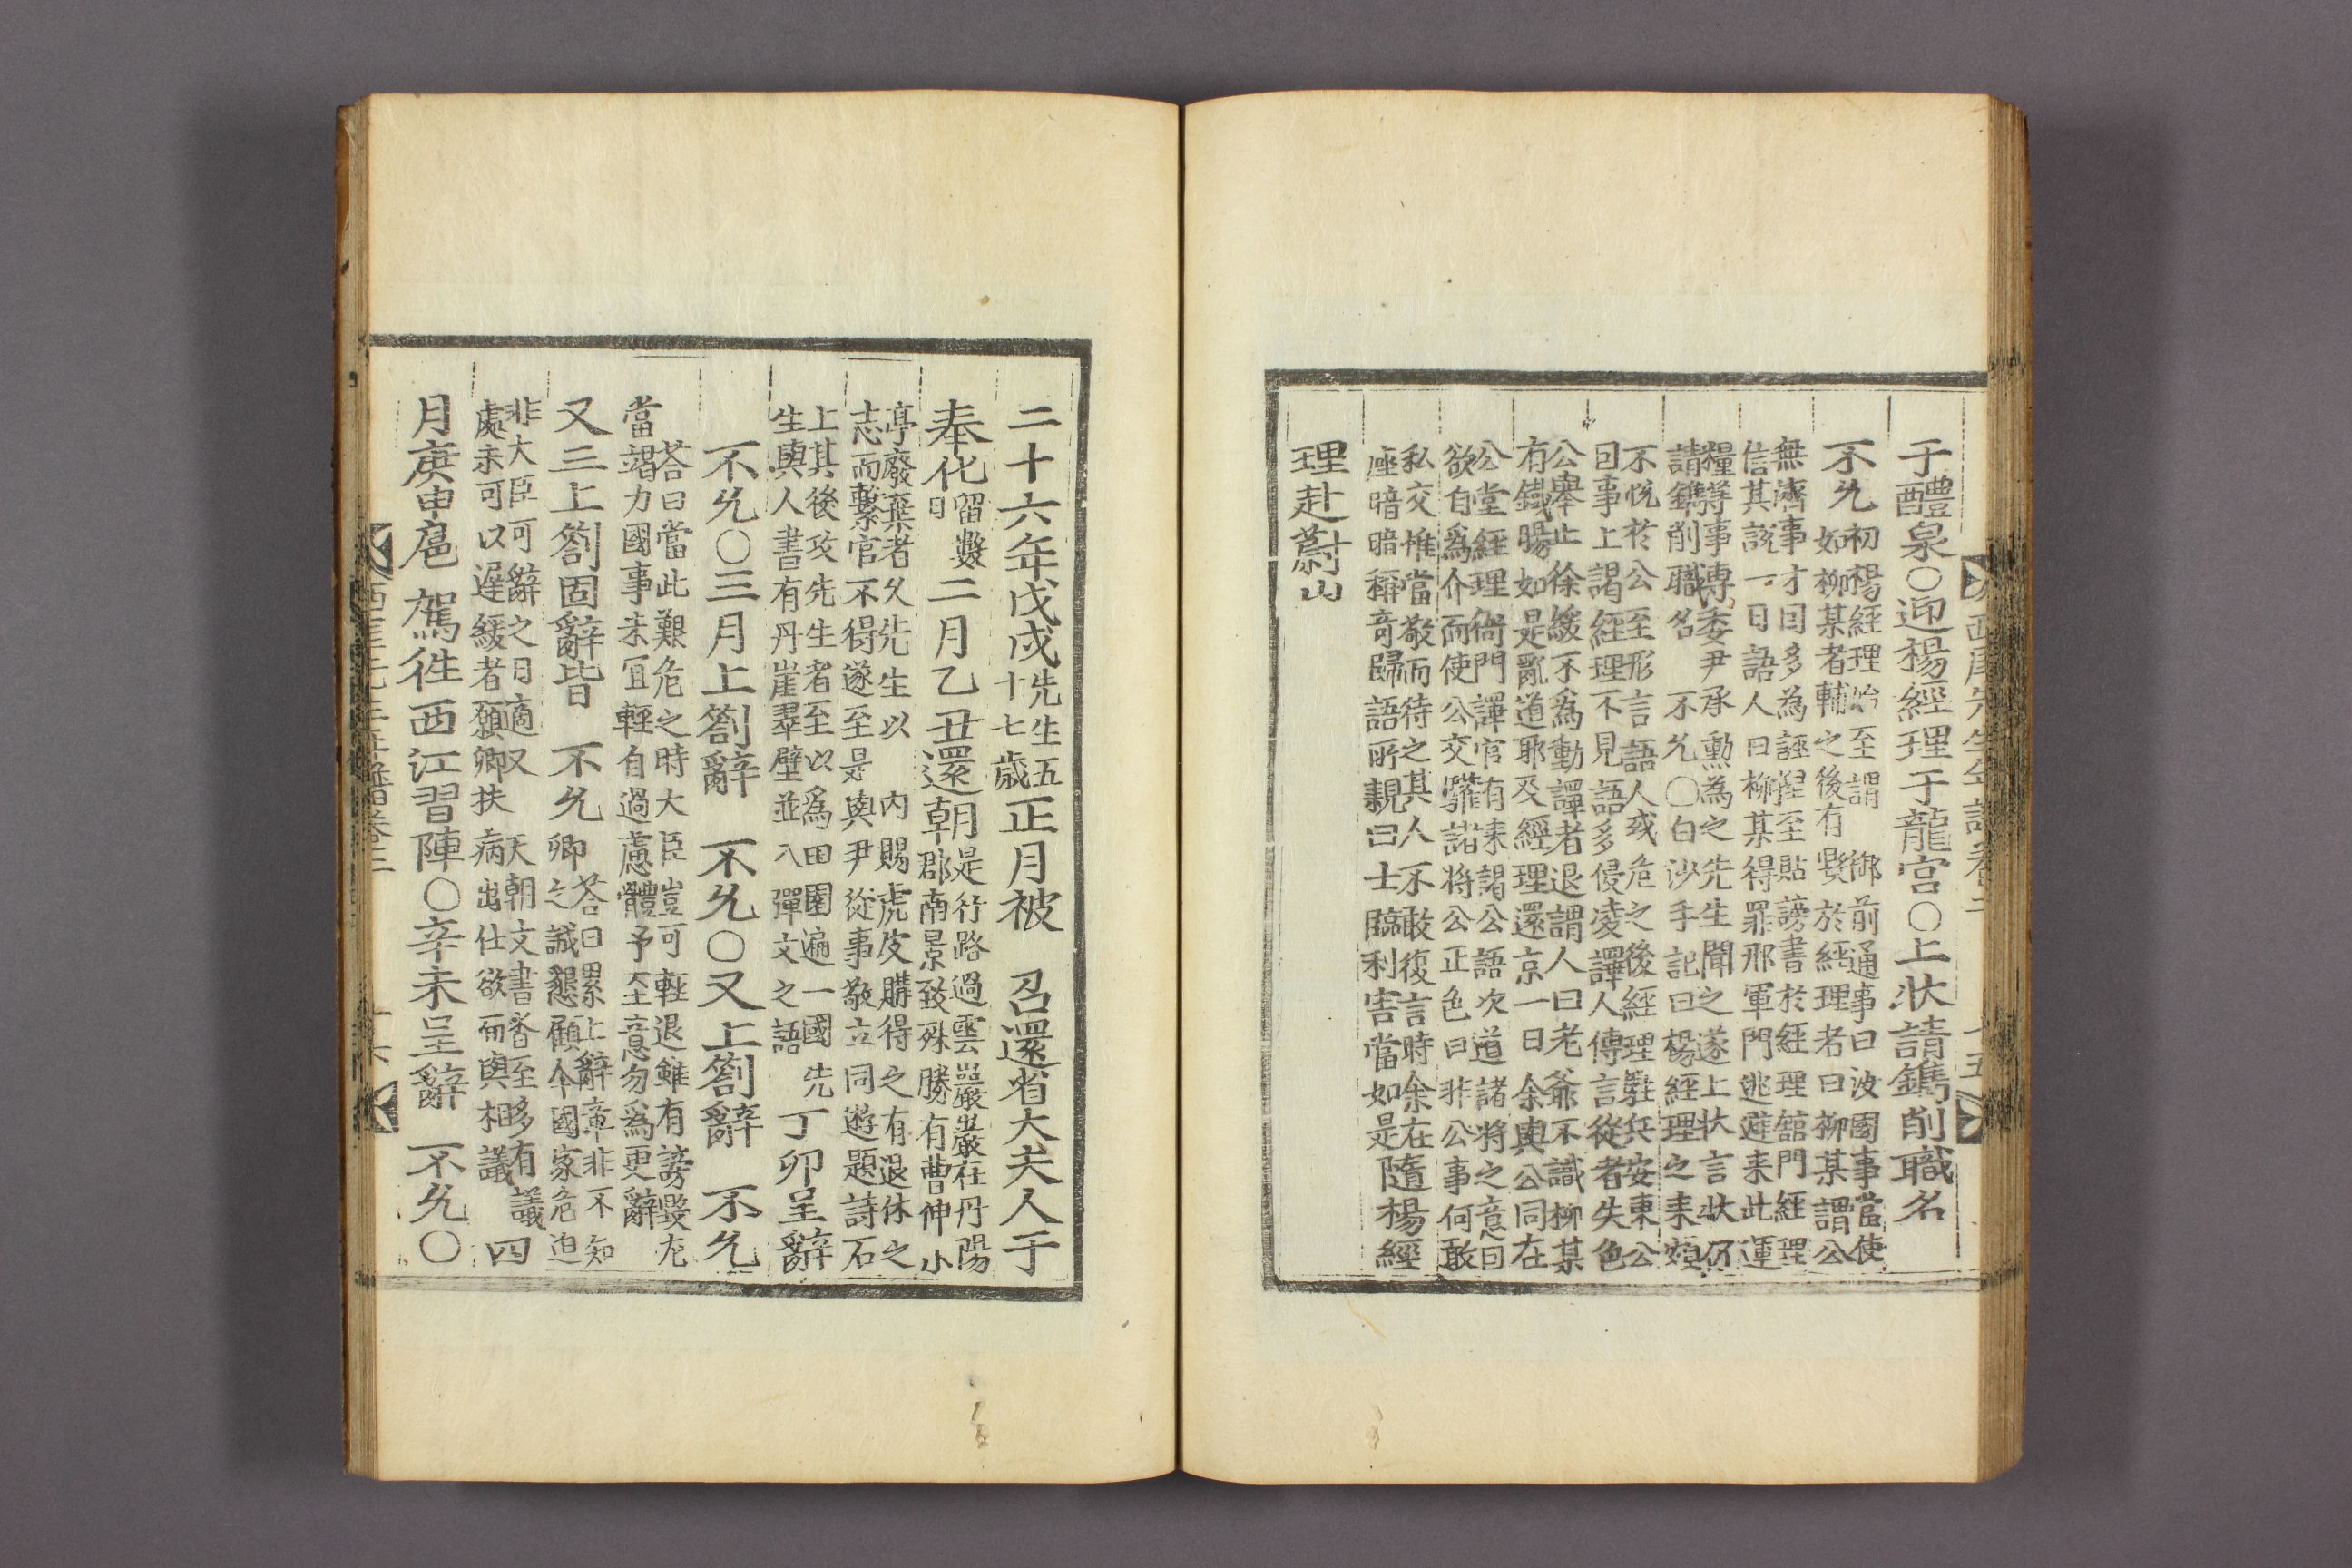 于醴泉○迎楊經理于龍宮○上狀請鐫削職名
不允初楊經理始至謂 御前通事曰汝國事當使
如柳某者輔之後有毀於經理者曰柳某謂公
無濟事才目多為誣捏至貼謗書於經理館門經理
信其說一日語人曰柳某得罪邢軍門逃避来此運
糧䓁事專委尹承勳為之先生聞之遂上狀言狀仍
請鐫削職名 不允○白沙手記曰楊經理之来頗
不悅於公至形言語人或危之後經理駐兵安東公
因事上謁經理不見語多侵凌譯人傳言從者失色
公舉止徐緩不為動譯者退謂人曰老爺不識柳某
有鐵膓如是亂道耶及經理還京一日余與公同在
公堂經理衙門譯官有来謁公語次道諸将之意曰
欲自為介而使公交驩諸将公正色曰非公事何敢
私交惟當敬而待之其人不敢復言時余在
座暗暗稱奇歸語所親曰士臨利害當如是隨楊經
理赴蔚山
西厓先生年譜卷之二
十五
二十六年戊戌先生五
十七歲正月被 召還省大夫人于
奉化留數
日二月乙丑還朝是行路過雲巖巖在丹陽
郡南景致殊勝有曹伸小
亭廢棄者久先生以 內賜虎皮購得之有退休之
志而繫官不得遂至是與尹從事敬立同遊題詩石
上其後攻先生者至以為田園遍一國先
生與人書有丹崖翠壁並入彈文之語丁卯呈辭
不允○三月上劄辭 不允○又上劄辭 不允
荅曰當此艱危之時大臣豈可輕退雖有謗毀尤
當竭力國事未宜輕自過慮體予至意勿為更辭
又三上劄固辭皆 不允荅曰累上辭章非不知
卿之誠懇顧今國家危迫
非大臣可辭之日適又 天朝文書沓至多有議
處未可以遲緩者願卿扶病出仕欲面與相議四
月庚申扈 駕徃西江習陣○辛未呈辭 不允○